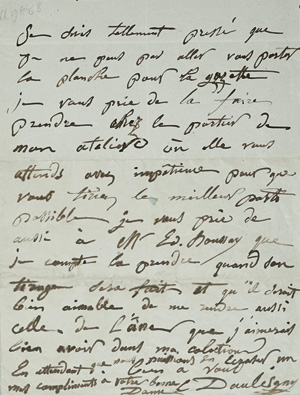 Je suis tellement pressé que
je ne peux pas aller vous porter
la planche pour la gazette
je vous prie de la faire
prendre chez le portier de
mon atelier où elle vous
attend avec impatience pour que
vous tiriez le meilleur parti
possible. je vous prie de
aussi à Mr Ed. Houssay que
je compte la prendre quand son
tirage sera fait et qu'il serait
bien aimable de me rendre aussi
celle de l'âne que j'aimerais
bien avoir dans ma collection
En attendant que nous puissions en un
mes compliments à votre bonne Bien à vous
Dame C. Daubigny